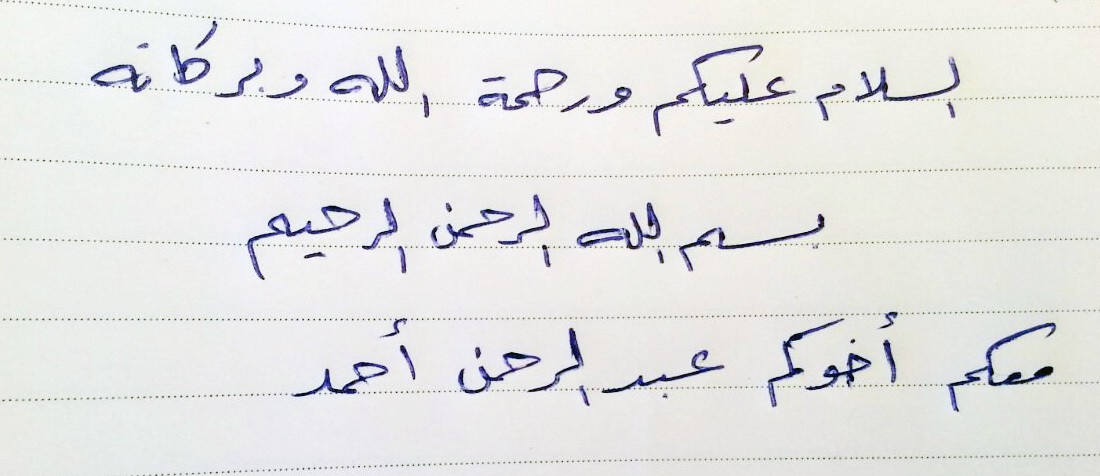 السلام عليكم ورحمة الله وبركاته
بسم الله الرحمن الرحيم
معكم أخوكم عبد الرحمن أحمد